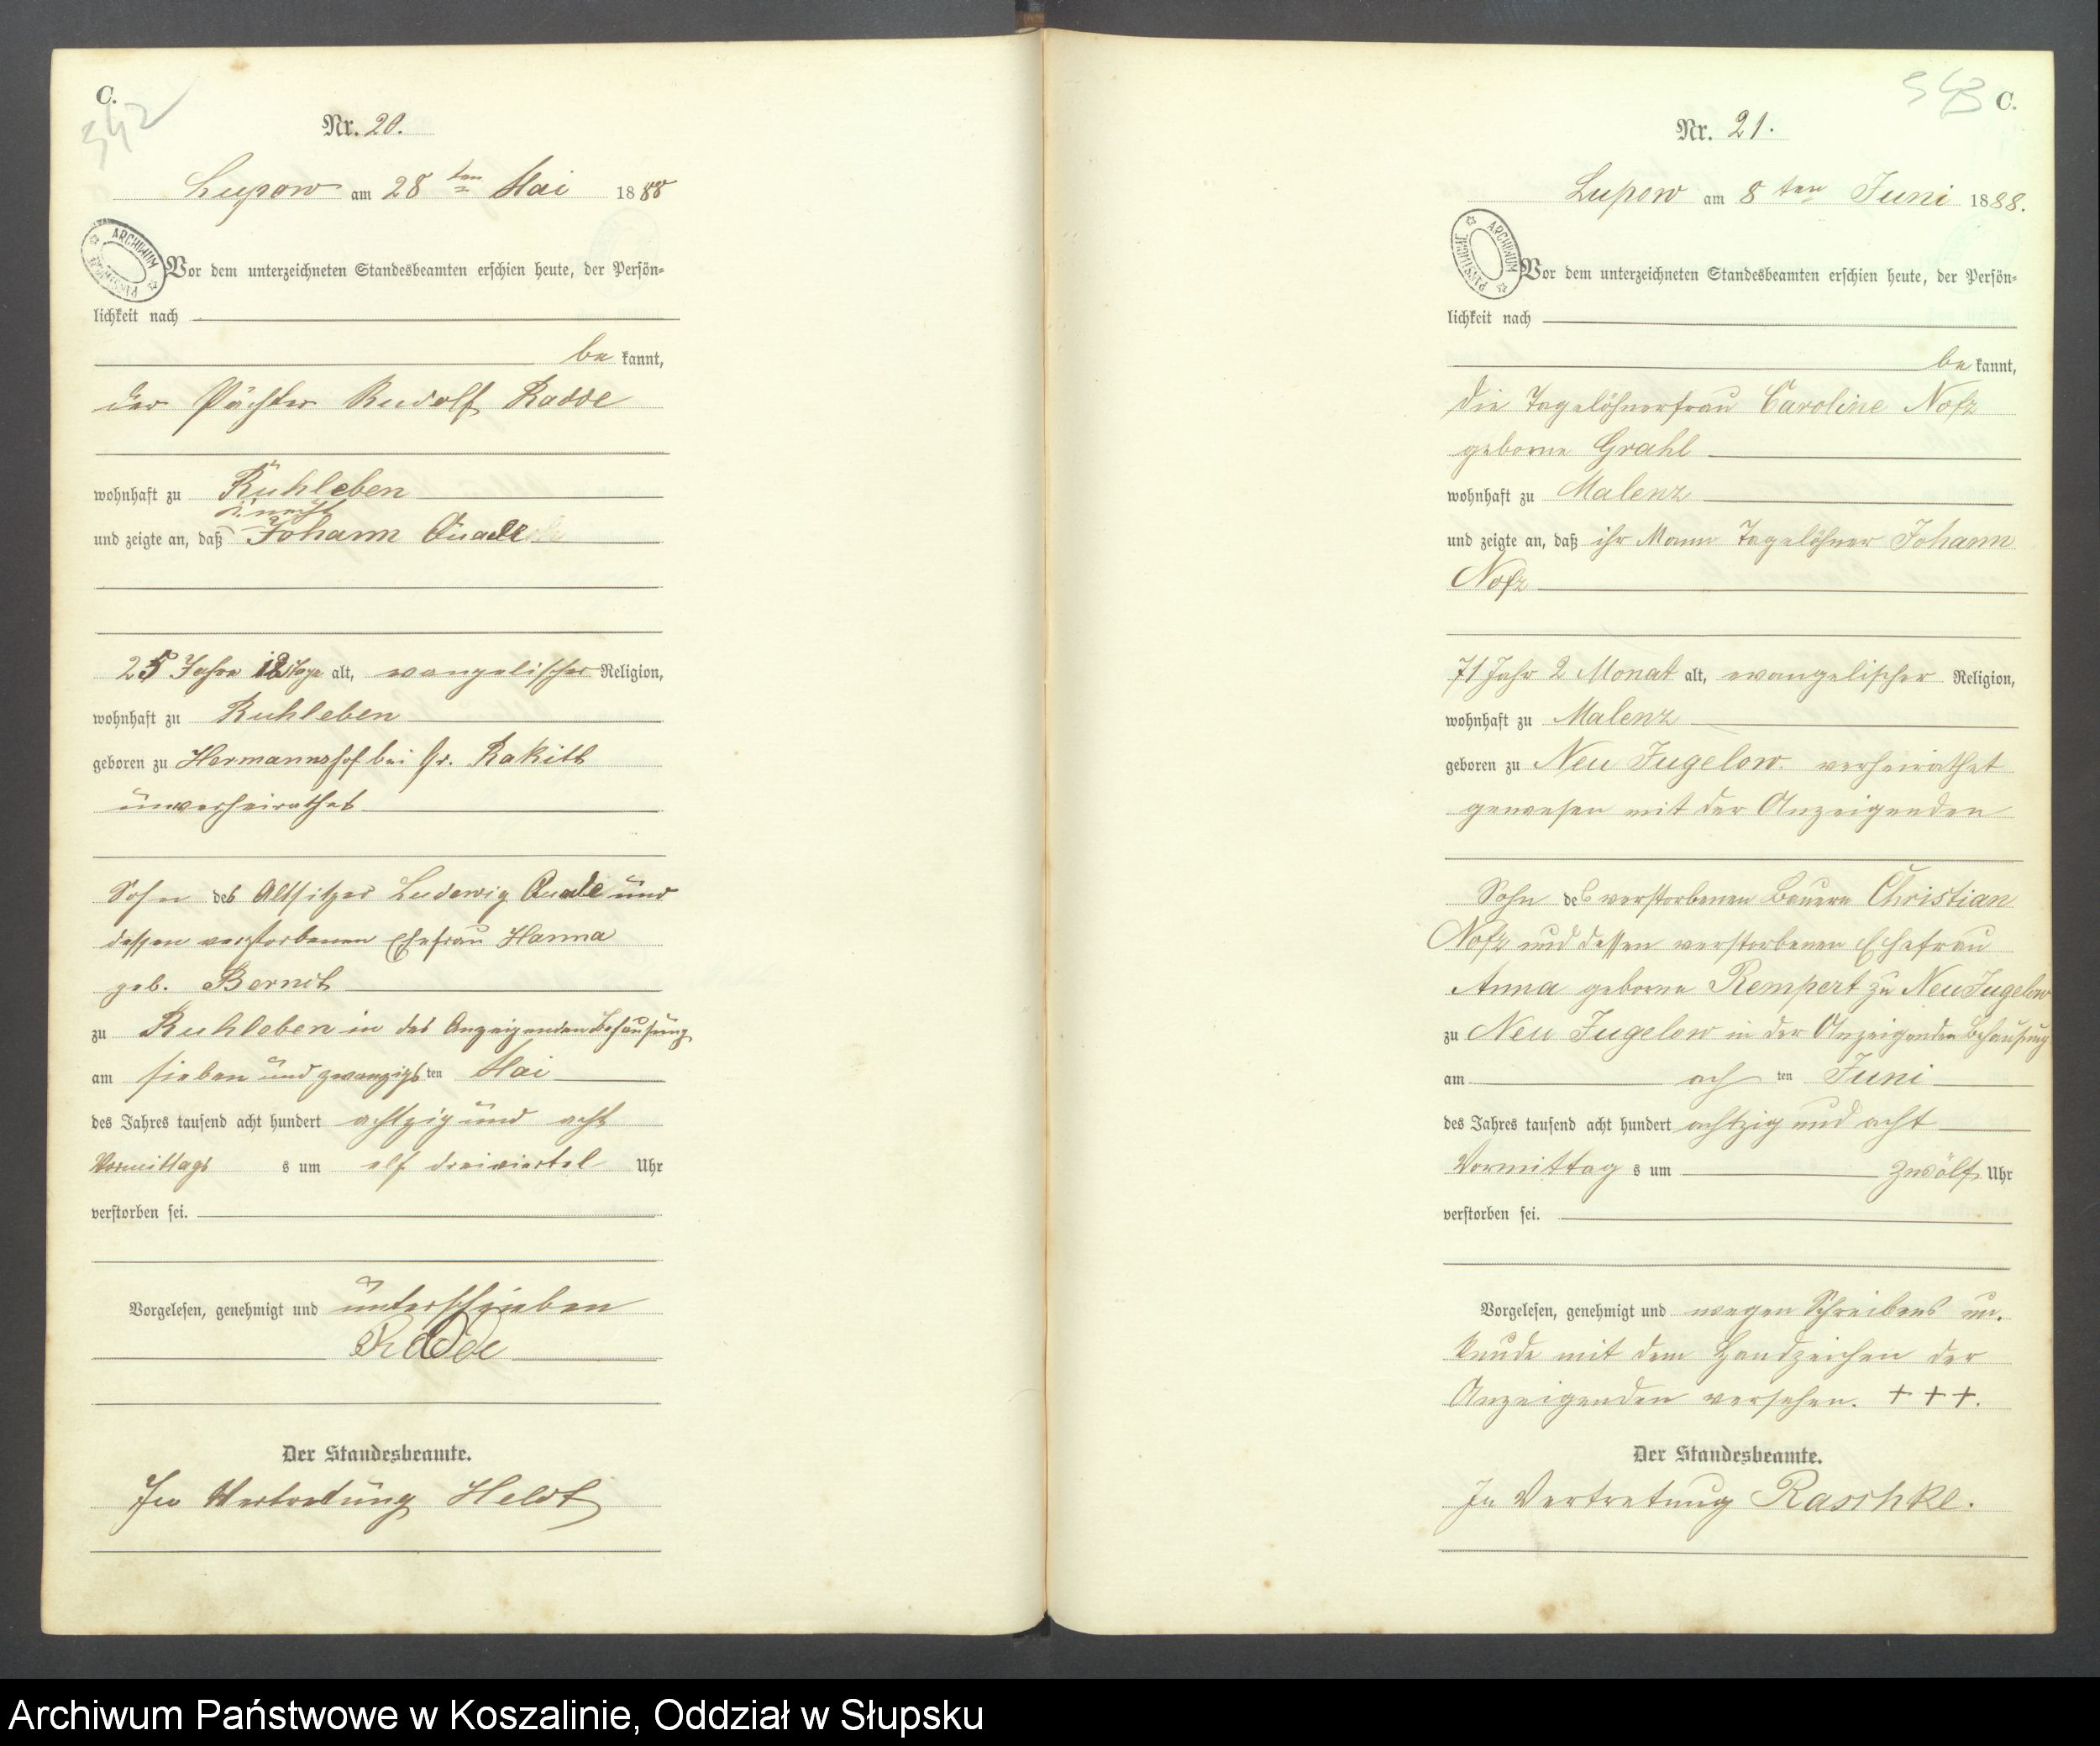 C.
542
Nr. 20.
Lupow am 28ten Mai 1888
ARCHIWUM PAŃSTWOWE
Vor dem unterzeichneten Standesbeamten erschien heute, der Persön-
lichkeit nach
be kannt,
der Pächter Rudolf Radde
wohnhaft zu Ruhleben
und zeigte an, daß Johann Quade
25 Jahre 12 Tage alt, evangelischer Religion,
wohnhaft zu Ruhleben
geboren zu Hermannshof bei Gr. Rakitt
unverheirathet
Sohn des Altsitzer Ludewig Quade und
dessen verstorbenen Ehefrau Hanna
geb. Berndt
zu Ruhleben in des Anzeigenden Behausung
am sieben und zwanzigs ten Mai
des Jahres tausend acht hundert achtzig und acht
Vormittags s um elf dreiviertel Uhr
verstorben sei.
Vorgelesen, genehmigt und unterschrieben
Radde
Der Standesbeamte.
In Vertretung Heldt
543 C.
Nr. 21.
Lupow am 8ten Juni 1888.
ARCHIWUM PAŃSTWOWE
Vor dem unterzeichneten Standesbeamten erschien heute, der Persön-
lichkeit nach
be kannt,
die Tagelöhnerfrau Caroline Nofz
geborne Grahl
wohnhaft zu Malenz
und zeigte an, daß ihr Mann Tagelöhner Johann
Nofz
71 Jahr 2 Monat alt, evangelischer Religion,
wohnhaft zu Malenz
geboren zu Neu Jugelow verheirathet
gewesen mit der Anzeigenden
Sohn des verstorbenen Bauern Christian
Nofz und dessen verstorbenen Ehefrau
Anna geborne Rempert zu Neu Jugelow
zu Neu Jugelow in der Anzeigenden Behausung
am ach ten Juni
des Jahres tausend acht hundert achtzig und acht
Vormittag s um zwölf Uhr
verstorben sei.
Vorgelesen, genehmigt und wegen Schreibens un-
kunde mit dem Handzeichen der
Anzeigenden versehen. +++.
Der Standesbeamte.
In Vertretung Raschke.
Archiwum Państwowe w Koszalinie, Oddział w Słupsku